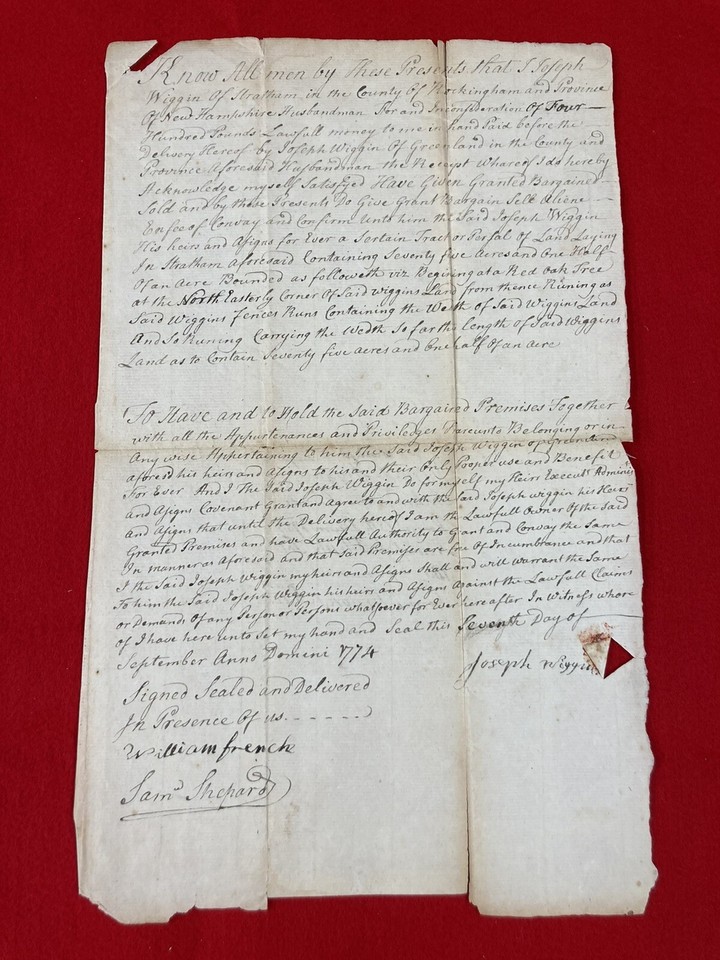 Know All men by These Presents that I Joseph
Wiggin Of Stratham in the County Of Rockingham and Province
Of New Hampshire Husbandman For and Inconsideration Of Four
Hundred Pounds Lawfull money to me in hand Paid before the
Delivery Hereof by Joseph Wiggin Of Greenland in the County and
Province Aforesaid Husbandman the Receipt Whareof I do hereby
Acknowledge myself Satisfyed Have Given Granted Bargained
Sold and by these Presents Do Give Grant Bargain Sell Aliene
Enfeof Convay and Confirm Unto him the Said Joseph Wiggin
His heirs and Asigns for Ever a Sertain Tract or Persal Of Land Laying
In Stratham aforesaid Containing Seventy five Acres and One Half
Of an Acre Bounded as followeth viz Begining at a Red Oak Tree
at the North Easterly Corner Of Said Wiggins Land from thence Runing as
Said Wiggins Fences Runs Containing the Weth of Said Wiggins Land
And So Runing Carrying the Wedth So far the Length of Said Wiggins
Land as to Contain Seventy five Acres and One half Of an Acre
To Have and to Hold the Said Bargained Premises Together
with all the Appurtenances and Priviledges Thareunto Belonging or in
Any wise Appertaining to him the Said Joseph Wiggin of Greenland
aforesd his heirs and Asigns to his and their Only Proper use and Benefit
For Ever And I the Said Joseph Wiggin Do for myself my Heirs Executs Adminrs
and Asigns Covenant Grant and Agree to and with the Said Joseph Wiggin his Heirs
And Asigns that until the Delivery hereof I am the Lawfull Owner Of the Said
Granted Premises and have Lawfull Authority to Grant and Convay the Same
In manner as Aforesaid and that Said Premises are free Of Incumbrance and that
I the Said Joseph Wiggin my heirs and Asigns Shall and will Warrant the Same
To him the Said Joseph Wiggin his heirs and Asigns Against the Lawfull Claims
or Demands Of any Person or Persons whatsoever for Ever hereafter In Witness whare
of I have here unto Set my hand and Seal this Seventh Day of
September Anno Domini 1774
Joseph Wiggin
Signed Sealed and Delivered
In Presence Of us
William french
Samll Shepard